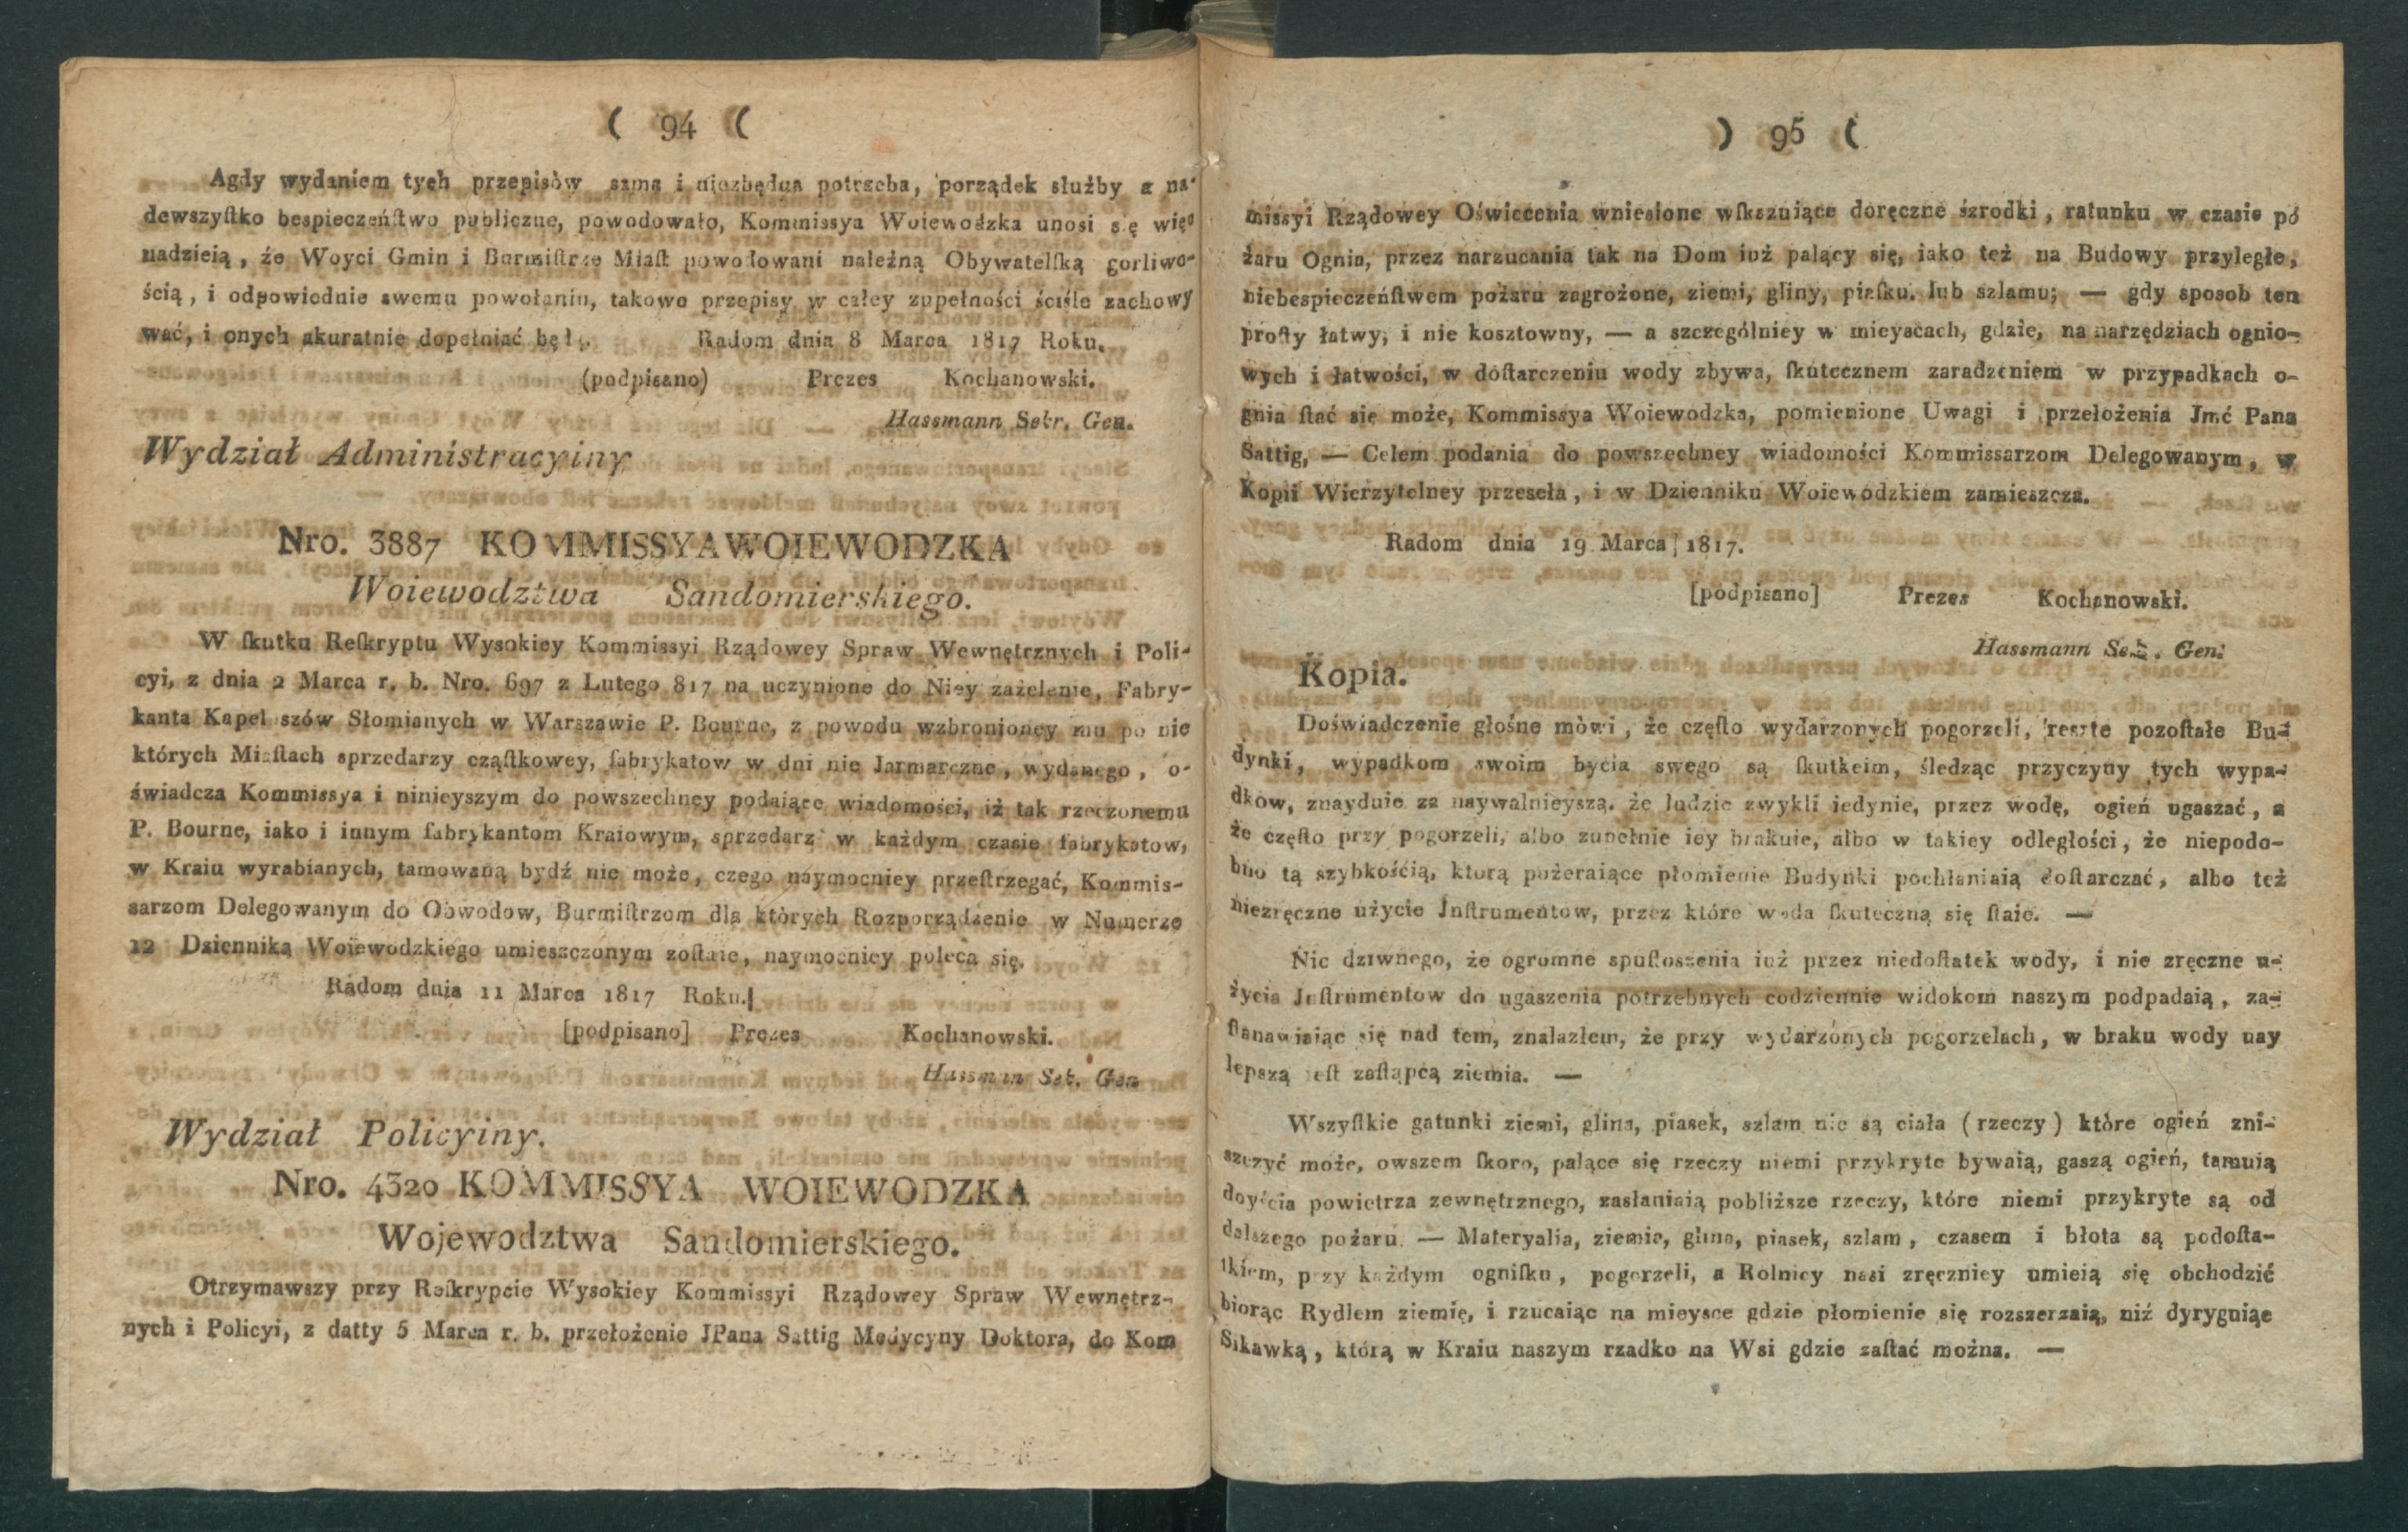 ( 94 (
Agdy wydaniem tych przepisòw sama i niezbędna potrzeba, porządek służby a na-
dewszyſtko bespieczeńſtwo publiczne, powodowało, Kommissya Woiewodzka unosi się więc
nadzieią, że Woyci Gmin i Burmiſtrze Miaſt powodowani należną Obywatelſką gorliwo-
ścią, i odpowiednie swemu powołaniu, takowe przepisy w całey zupełności ściśle zachowy
wać, i onych akuratnie dopełniać będą. Radom dnia 8 Marca 1817 Roku.
(podpisano) Prezes Kochanowski.
Hassmann Sekr. Gen.
Wydział Administracyiny
Nro. 3887 KOMMISSYA WOIEWODZKA
Woiewodztwa Sandomierskiego.
W ſkutku Reſkryptu Wysokiey Kommissyi Rządowey Spraw Wewnętrznych i Poli-
cyi, z dnia 2 Marca r. b. Nro. 697 z Lutego 817 na uczynione do Niey zażelenie, Fabry-
kanta Kapeluszów Słomianych w Warszawie P. Bourne, z powodu wzbronioney mu po nie
których Miaſtach sprzedarzy cząſtkowey, fabrykatow w dni nie Jarmarczne, wydanego, o-
świadcza Kommissya i ninieyszym do powszechney podaiące wiadomości, iż tak rzeczonemu
P. Bourne, iako i innym fabrykantom Kraiowym, sprzedarz w każdym czasie fabrykatow,
w Kraiu wyrabianych, tamowaną bydź nie może, czego naymocniey przeſtrzegać, Kommis-
sarzom Delegowanym do Obwodow, Burmiſtrzom dla których Rozporządzenie w Numerze
12 Dziennika Woiewodzkiego umieszczonym zoſtaie, naymocniey poleca się.
Radom dnia 11 Marca 1817 Roku.
[podpisano] Prezes Kochanowski.
Hassman Sek. Gen
Wydział Policyiny.
Nro. 4320 KOMMISSYA WOIEWODZKA
Wojewodztwa Sandomierskiego.
Otrzymawszy przy Reſkrypcie Wysokiey Kommissyi Rządowey Spraw Wewnętrz-
nych i Policyi, z datty 5 Marca r. b. przełożenie JPana Sattig Medycyny Doktora, do Kom
) 95 (
missyi Rządowey Oświecenia wniesione wſkazuiące doręczne śzrodki, ratunku w czasie po
żaru Ognia, przez narzucania tak na Dom iuż palący się, iako też na Budowy przyległe,
niebespieczeńſtwem pożaru zagrożone, ziemi, gliny, piaſku. lub szlamu; — gdy sposob ten
proſty łatwy, i nie kosztowny, — a szczególniey w mieyscach, gdzie, na narzędziach ognio-
wych i łatwości, w doſtarczeniu wody zbywa, ſkutecznem zaradzeniem w przypadkach o-
gnia ſtać się może, Kommissya Woiewodzka, pomienione Uwagi i przełożenia Jmć Pana
Sattig, — Celem podania do powszechney wiadomości Kommissarzom Delegowanym, w
Kopii Wierzytelney przeseła, i w Dzienniku Woiewodzkiem zamieszcza.
Radom dnia 19 Marca 1817.
[podpisano] Prezes Kochanowski.
Hassmann Sek. Gen:
Kopia.
Doświadczenie głośne mòwi, że częſto wydarzonych pogorzeli, reszte pozoſtałe Bu-
dynki, wypadkom swoim bycia swego są ſkutkeim, śledząc przyczyny tych wypa-
dkow, znayduie za naywalnieyszą. że ludzie zwykli iedynie, przez wodę, ogień ugaszać, a
że częſto przy pogorzeli, albo zupełnie iey brakuie, albo w takiey odległości, że niepodo-
bno tą szybkością, ktorą pożeraiące płomienie Budynki pochłaniaią doſtarczać, albo też
niezręczne użycie Jnſtrumentow, przez które woda ſkuteczną się ſtaie. —
Nic dziwnego, że ogromne spuſtoszenia iuż przez niedoſtatek wody, i nie zręczne u-
życia Jnſtrumentow do ugaszenia potrzebnych codziennie widokom naszym podpadaią, za-
ſtanawiaiąc się nad tem, znalazłem, że przy wydarzonych pogorzelach, w braku wody nay
lepszą ieſt zaſtąpcą ziemia. —
Wszyſtkie gatunki ziemi, glina, piasek, szlam nie są ciała (rzeczy) które ogień zni-
szczyć może, owszem ſkoro, palące się rzeczy niemi przykryte bywaią, gaszą ogień, tamuią
doyścia powietrza zewnętrznego, zasłaniaią pobliższe rzeczy, które niemi przykryte są od
dalszego pożaru. — Materyalia, ziemia, glina, piasek, szlam, czasem i błota są podoſta-
tkiem, przy każdym ogniſku, pogorzeli, a Rolnicy nasi zręczniey umieią się obchodzić
biorąc Rydlem ziemię, i rzucaiąc na mieysce gdzie płomienie się rozszerzaią, niż dyryguiąc
Sikawką, którą w Kraiu naszym rzadko na Wsi gdzie zaſtać można. —